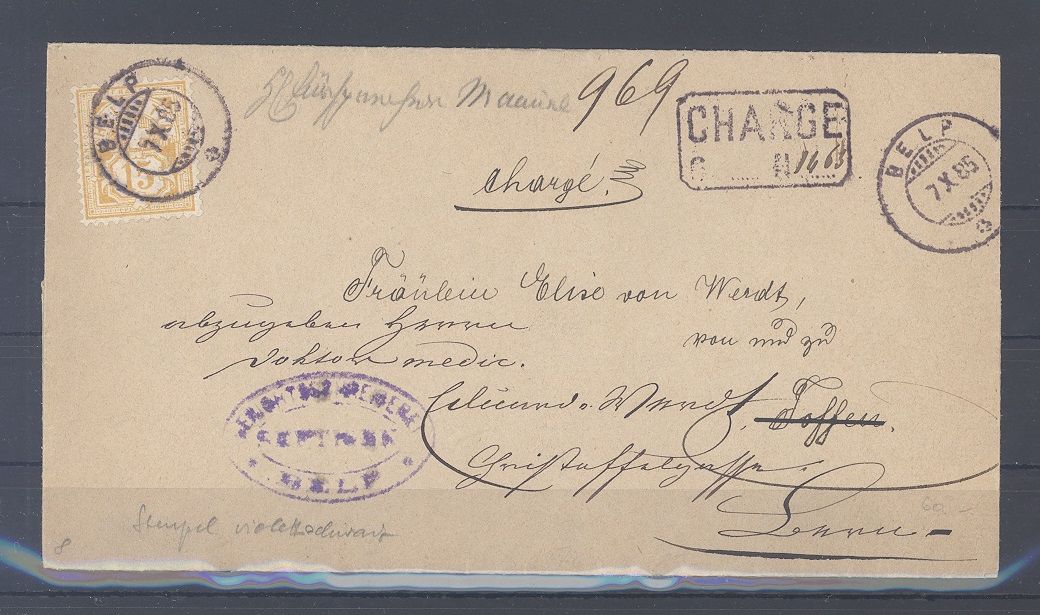 BELP
7 X 85
15
969
CHARGE
N 1468
BELP
7 X 85
Chargé.
Fräulein Elise von Werdt,
abzugeben Herrn
von und zu
Doktor medic.
Edmund v. Werdt, Toffen.
Christoffelgasse
Bern -
BELP
Stempel violettschwarz
8
60 -